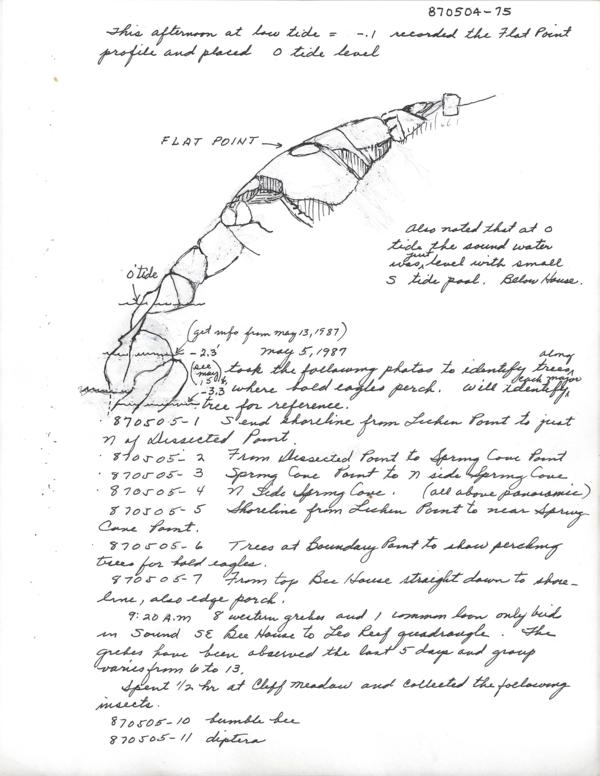 870504-75
This afternoon at low tide = -.1 recorded the Flat Point
profile and placed 0 tide level
FLAT POINT
Also noted that at 0
tide the sound water
was just level with small
S tide pool. Below House.
0 tide
(get info from May 13, 1987)
-2.3' May 5, 1987
(see May 15, 8
took the following photos to identify trees along
-3.3 where bald eagles perch. Will identify each major
tree for reference.
870505-1 S end shoreline from Lichen Point to just
N of Dissected Point.
870505-2 From Dissected Point to Spring Cove Point
870505-3 Spring Cove Point to N side Spring Cove.
870505-4 N Side Spring Cove. (all above panoramic)
870505-5 Shoreline from Lichen Point to near Spring
Cove Point.
870505-6 Trees at Boundary Point to show perching
trees for bald eagles.
870505-7 From top Bee House straight down to shore-
line, also edge porch.
9:20 A.M 8 western grebes and 1 common loon only bird
in Sound SE Bee House to Leo Reef quadrangle. The
grebes have been observed the last 5 days and group
varies from 6 to 13.
Spent 1/2 hr at Cliff Meadow and collected the following
insects.
870505-10 bumble bee
870505-11 diptera